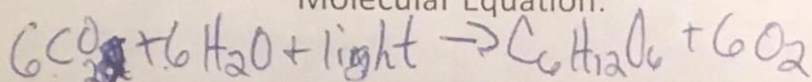 Molecular Equation:
6CO₂ + 6H₂O + light → C₆H₁₂O₆ + 6O₂